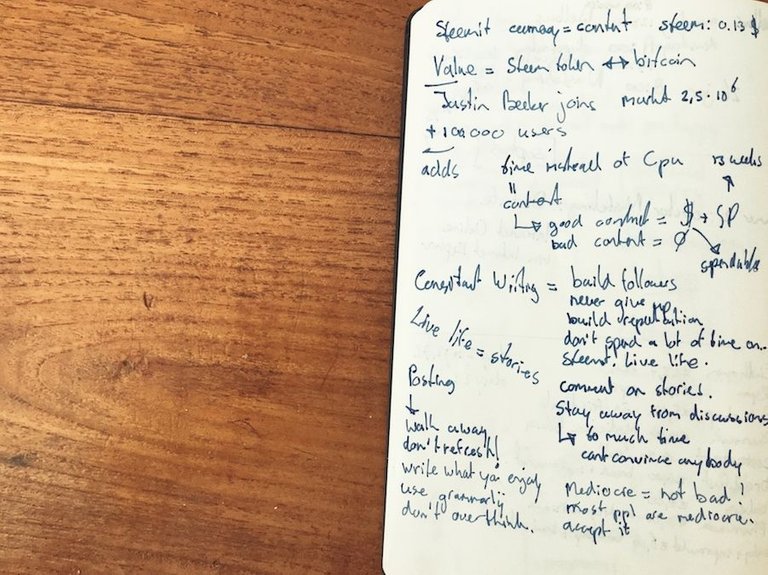 Steemit = content steem: 0.13 $
Value = Steem token ↔ bitcoin
Justin joins market 2,5 · 10⁶
+ 100 000 users
adds time instead of Cpu 13 weeks
content
↳ good content = $ + SP
bad content = ∅ spendable
Constant Writing = build followers
never give up
build reputation
don't spend a lot of time on
steemit. Live life.
Live life = stories
Posting
↓
walk away
don't refresh!
write what you enjoy
use grammarly
don't overthink.
comment on stories.
Stay away from discussions
↳ to much time
cant convince anybody
Mediocre = not bad!
most ppl are mediocre.
accept it